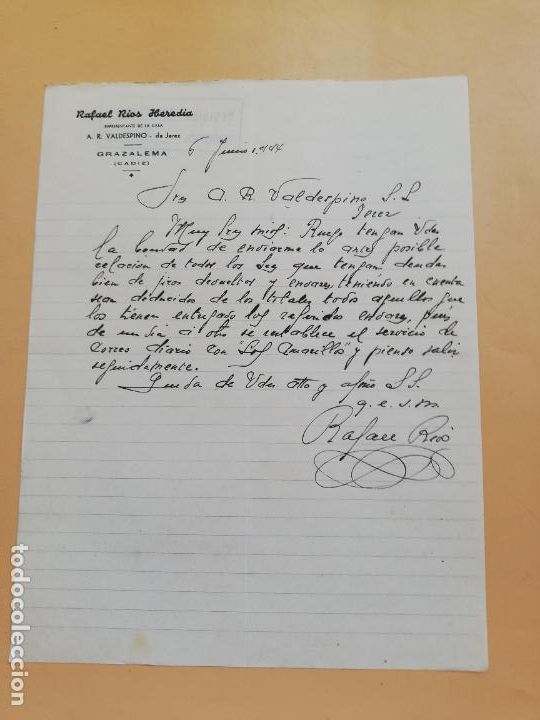 Rafael Ríos Heredia
REPRESENTANTE DE LA CASA
A. R. VALDESPINO - de Jerez
GRAZALEMA
(CADIZ)
6 Junio 1.944
Srs A. R. Valdespino S. L
Jerez
Muy Srs mios: Ruego tengan Vdes
la bondad de enviarme lo antes posible
relacion de todos los Srs que tengan deudas
bien de jiros devueltos y envases, teniendo en cuenta
sean deducidos de los totales todos aquellos que
los tienen entregado los referidos envases, pues
de un dia a otro se establece el servicio de
correo diario con "Los Amarillos" y pienso salir
seguidamente.
Queda de Vdes atto y afmo S.S.
q. e. s. m
Rafael Rios
todocoleccion